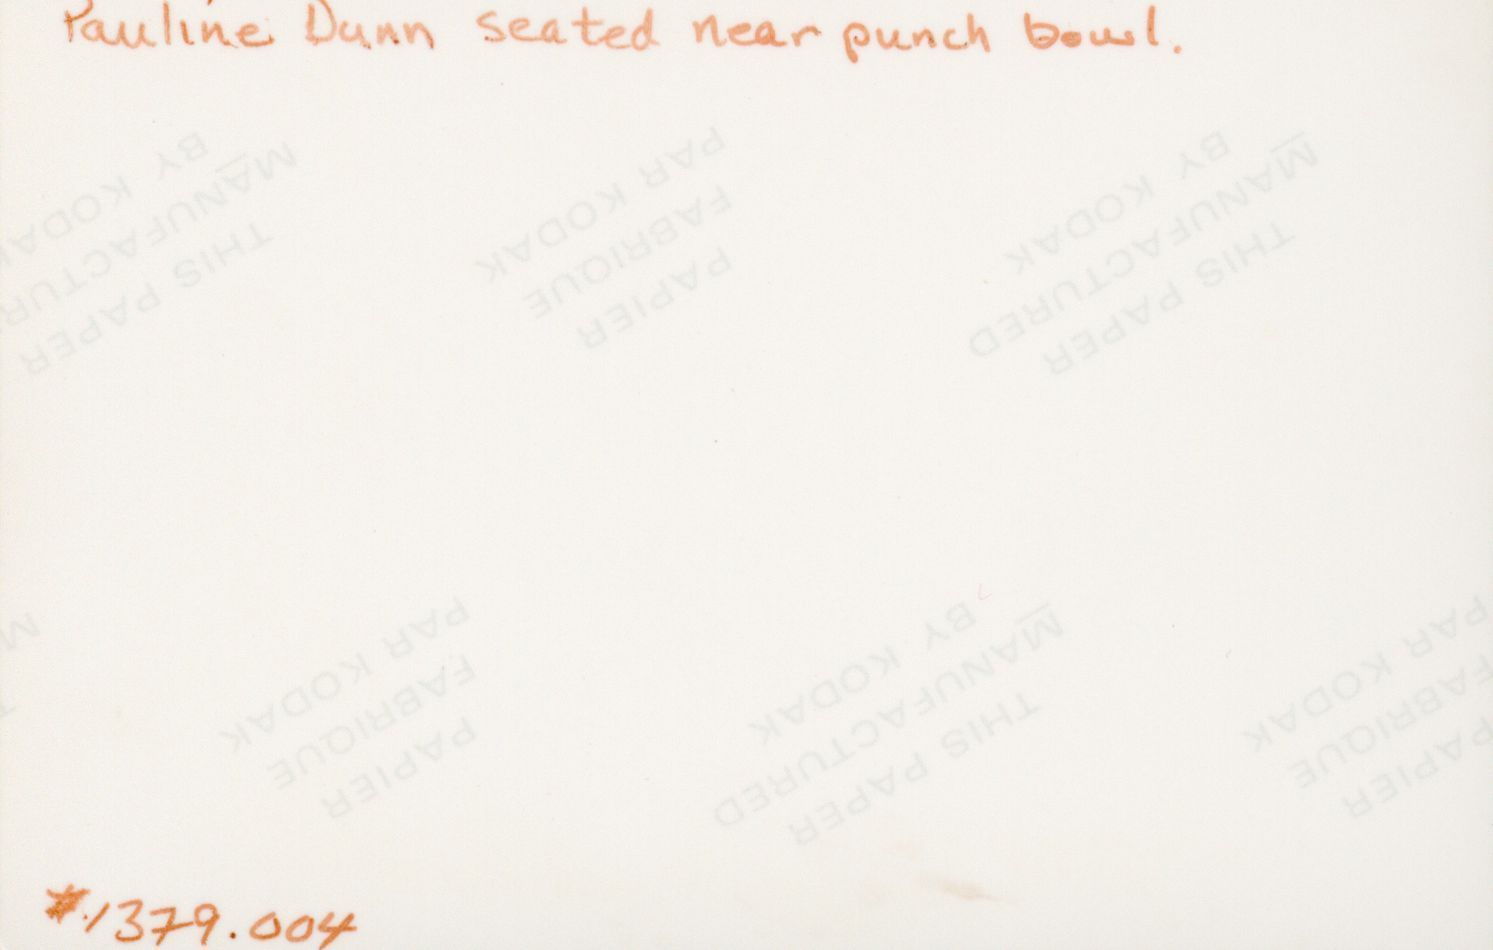 Pauline Dunn seated near punch bowl.
THIS PAPER
MANUFACTURED
BY KODAK
PAPIER
FABRIQUE
PAR KODAK
THIS PAPER
MANUFACTURED
BY KODAK
PAPIER
FABRIQUE
PAR KODAK
THIS PAPER
MANUFACTURED
BY KODAK
PAPIER
FABRIQUE
PAR KODAK
#1379.004